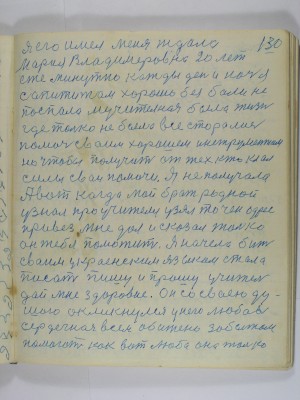 130
я его имел меня ждала
Мария Владимеровна 20 лет
сте минутно каждый ден и ноч я
с апититам хорошо без бали не
поспала мучителная была жизн
где толко не была все старалис
помоч своим хорошем инструментом
но чтобы получит от тех кто клал
силы сваи помочи. Я не получала
А вот когда мой брат родной
узнал про учителя узял то чен
привез мне дал и сказал толко
он тебя поможит. Я начела бит
своим украенским язиком стала
писат пишу и прошу учител
дай мне здоровие. Он со своею ду-
шою окликнулся у него любов
сердечная всем обижено заботам
помогат как вот люба она толко